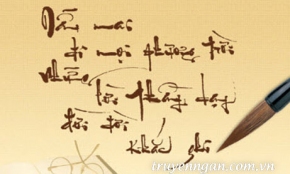 Dẫu mai
đi mọi phương trời
Những lời thầy dạy
đời đời
khắc ghi
truyenngan.com.vn